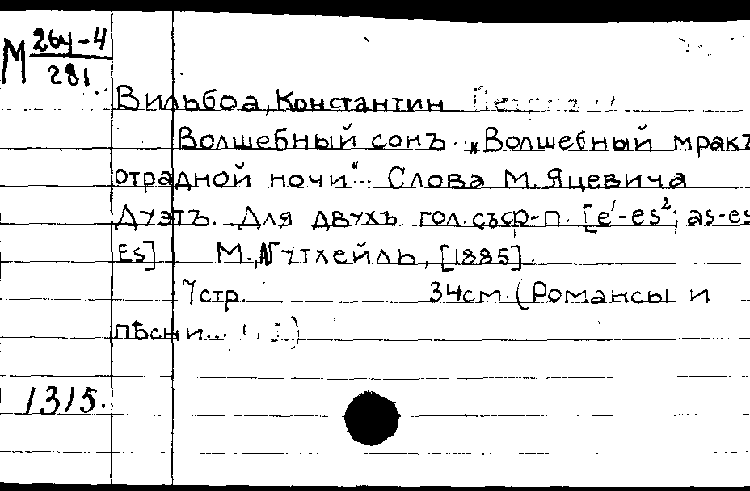 М 26у-4
281
Вильбоа, Константин
Волшебный сонъ. „Волшебный мракъ
отрадной ночи“... Слова М. Яцевича
Дуэтъ. Для двухъ гол. съ ф-п. [e¹-es²; as-es
Es] М., Гутхейль, [1885].
7 стр. 34 см. (Романсы и
пѣсни...
1315.